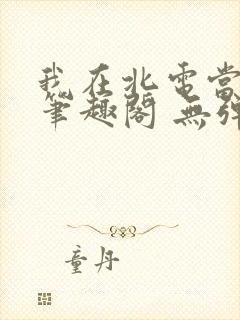 我在北電當
筆趣閣 無彈
童丹